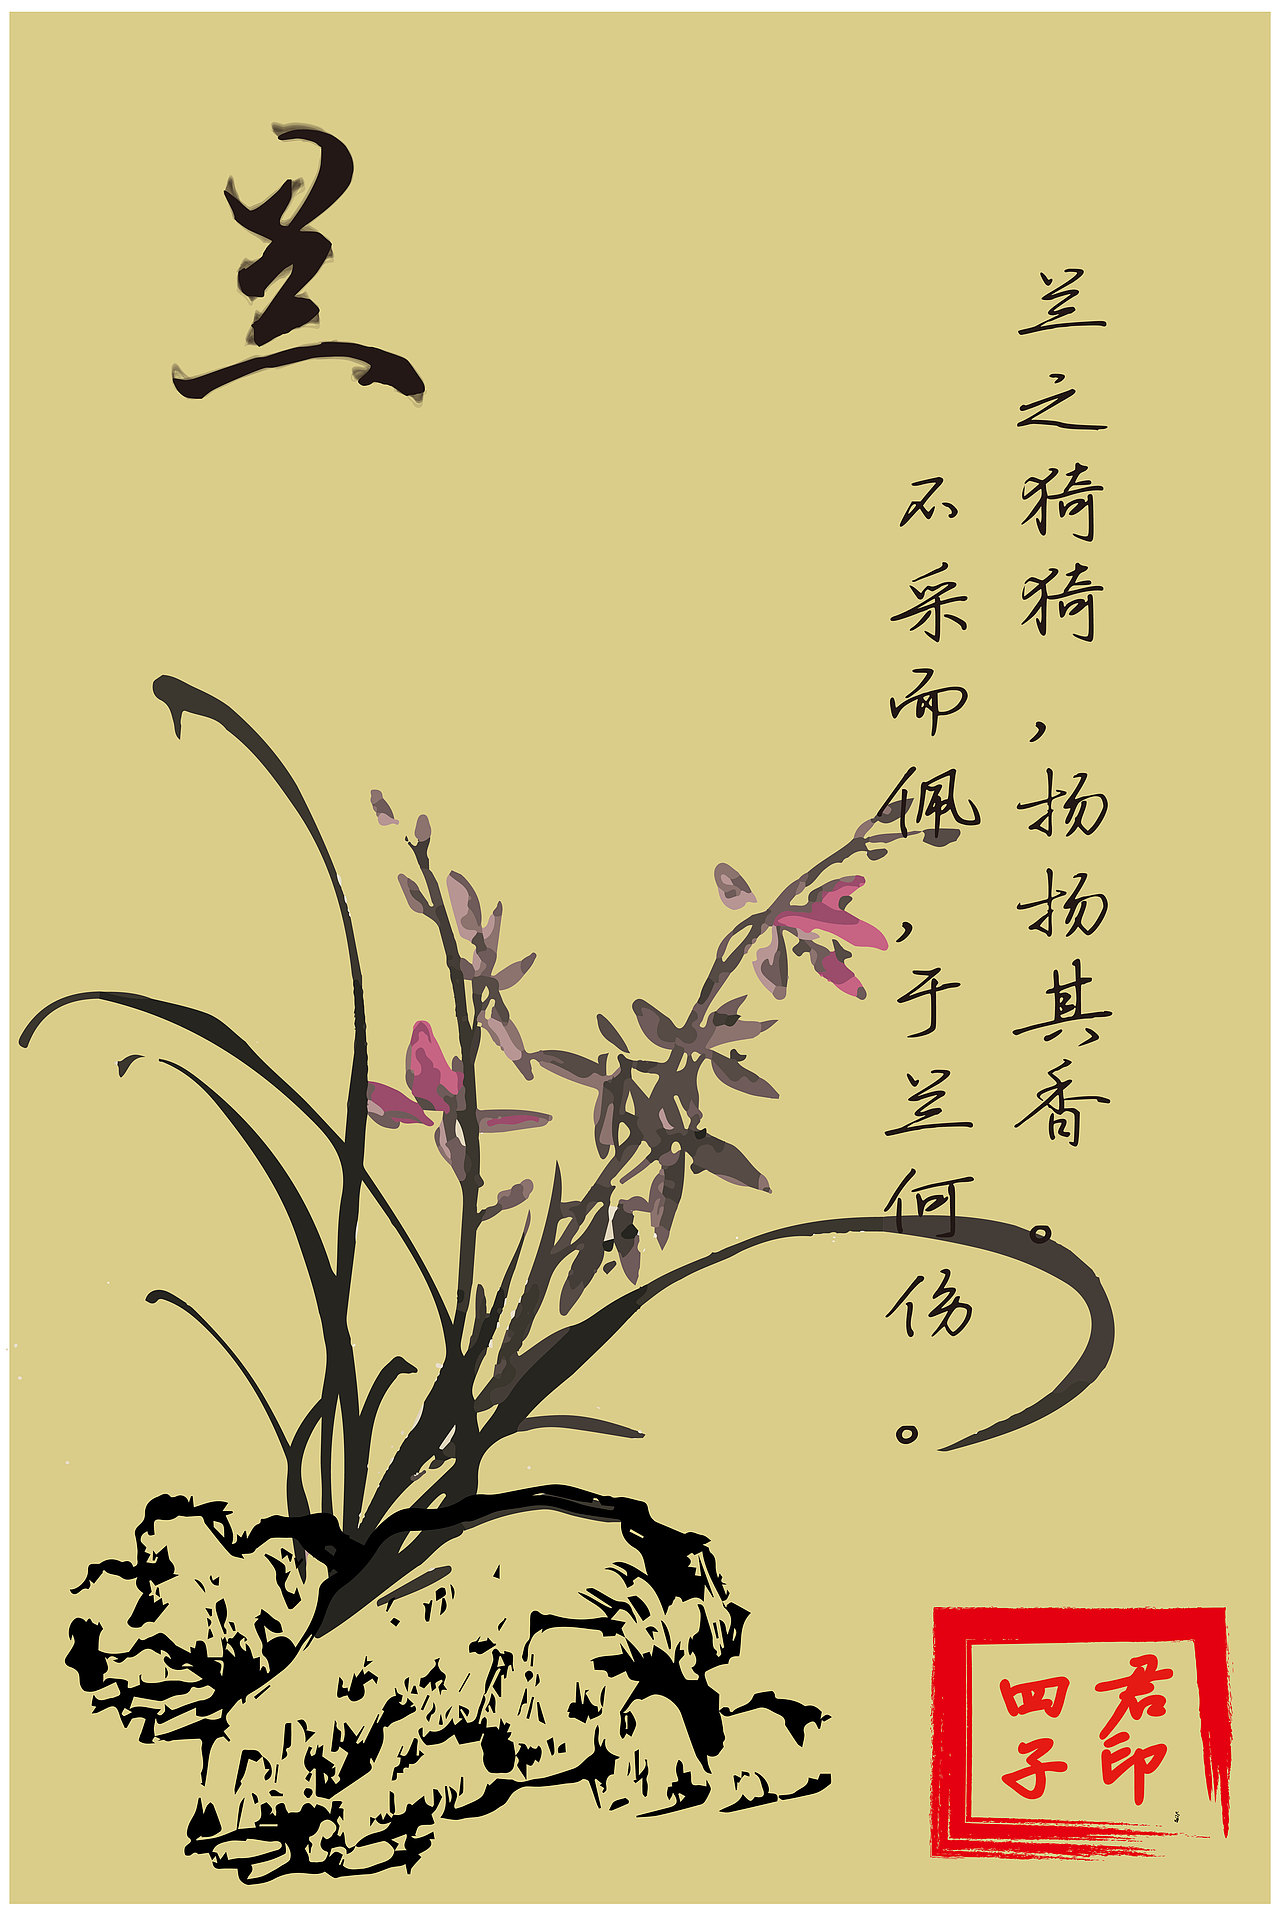 兰
兰之猗猗，扬扬其香。
不采而佩，于兰何伤。
君印
四子